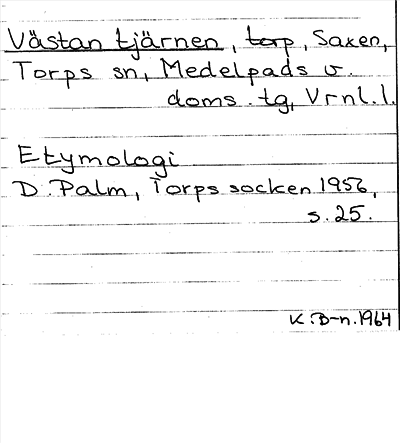 Västan tjärnen, torp, Saxen,
Torps sn, Medelpads v.
doms. tg, Vrml. l.
Etymologi
D. Palm, Torps socken 1956,
s. 25.
K. B-n. 1964